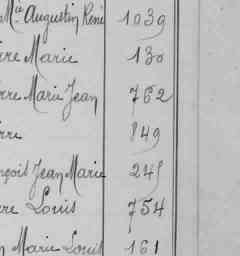 Mie Augustin René 1039
rre Marie 130
rre Marie Jean 762
rre 849
nçois Jean Marie 245
re Louis 754
n Marie Louis 161